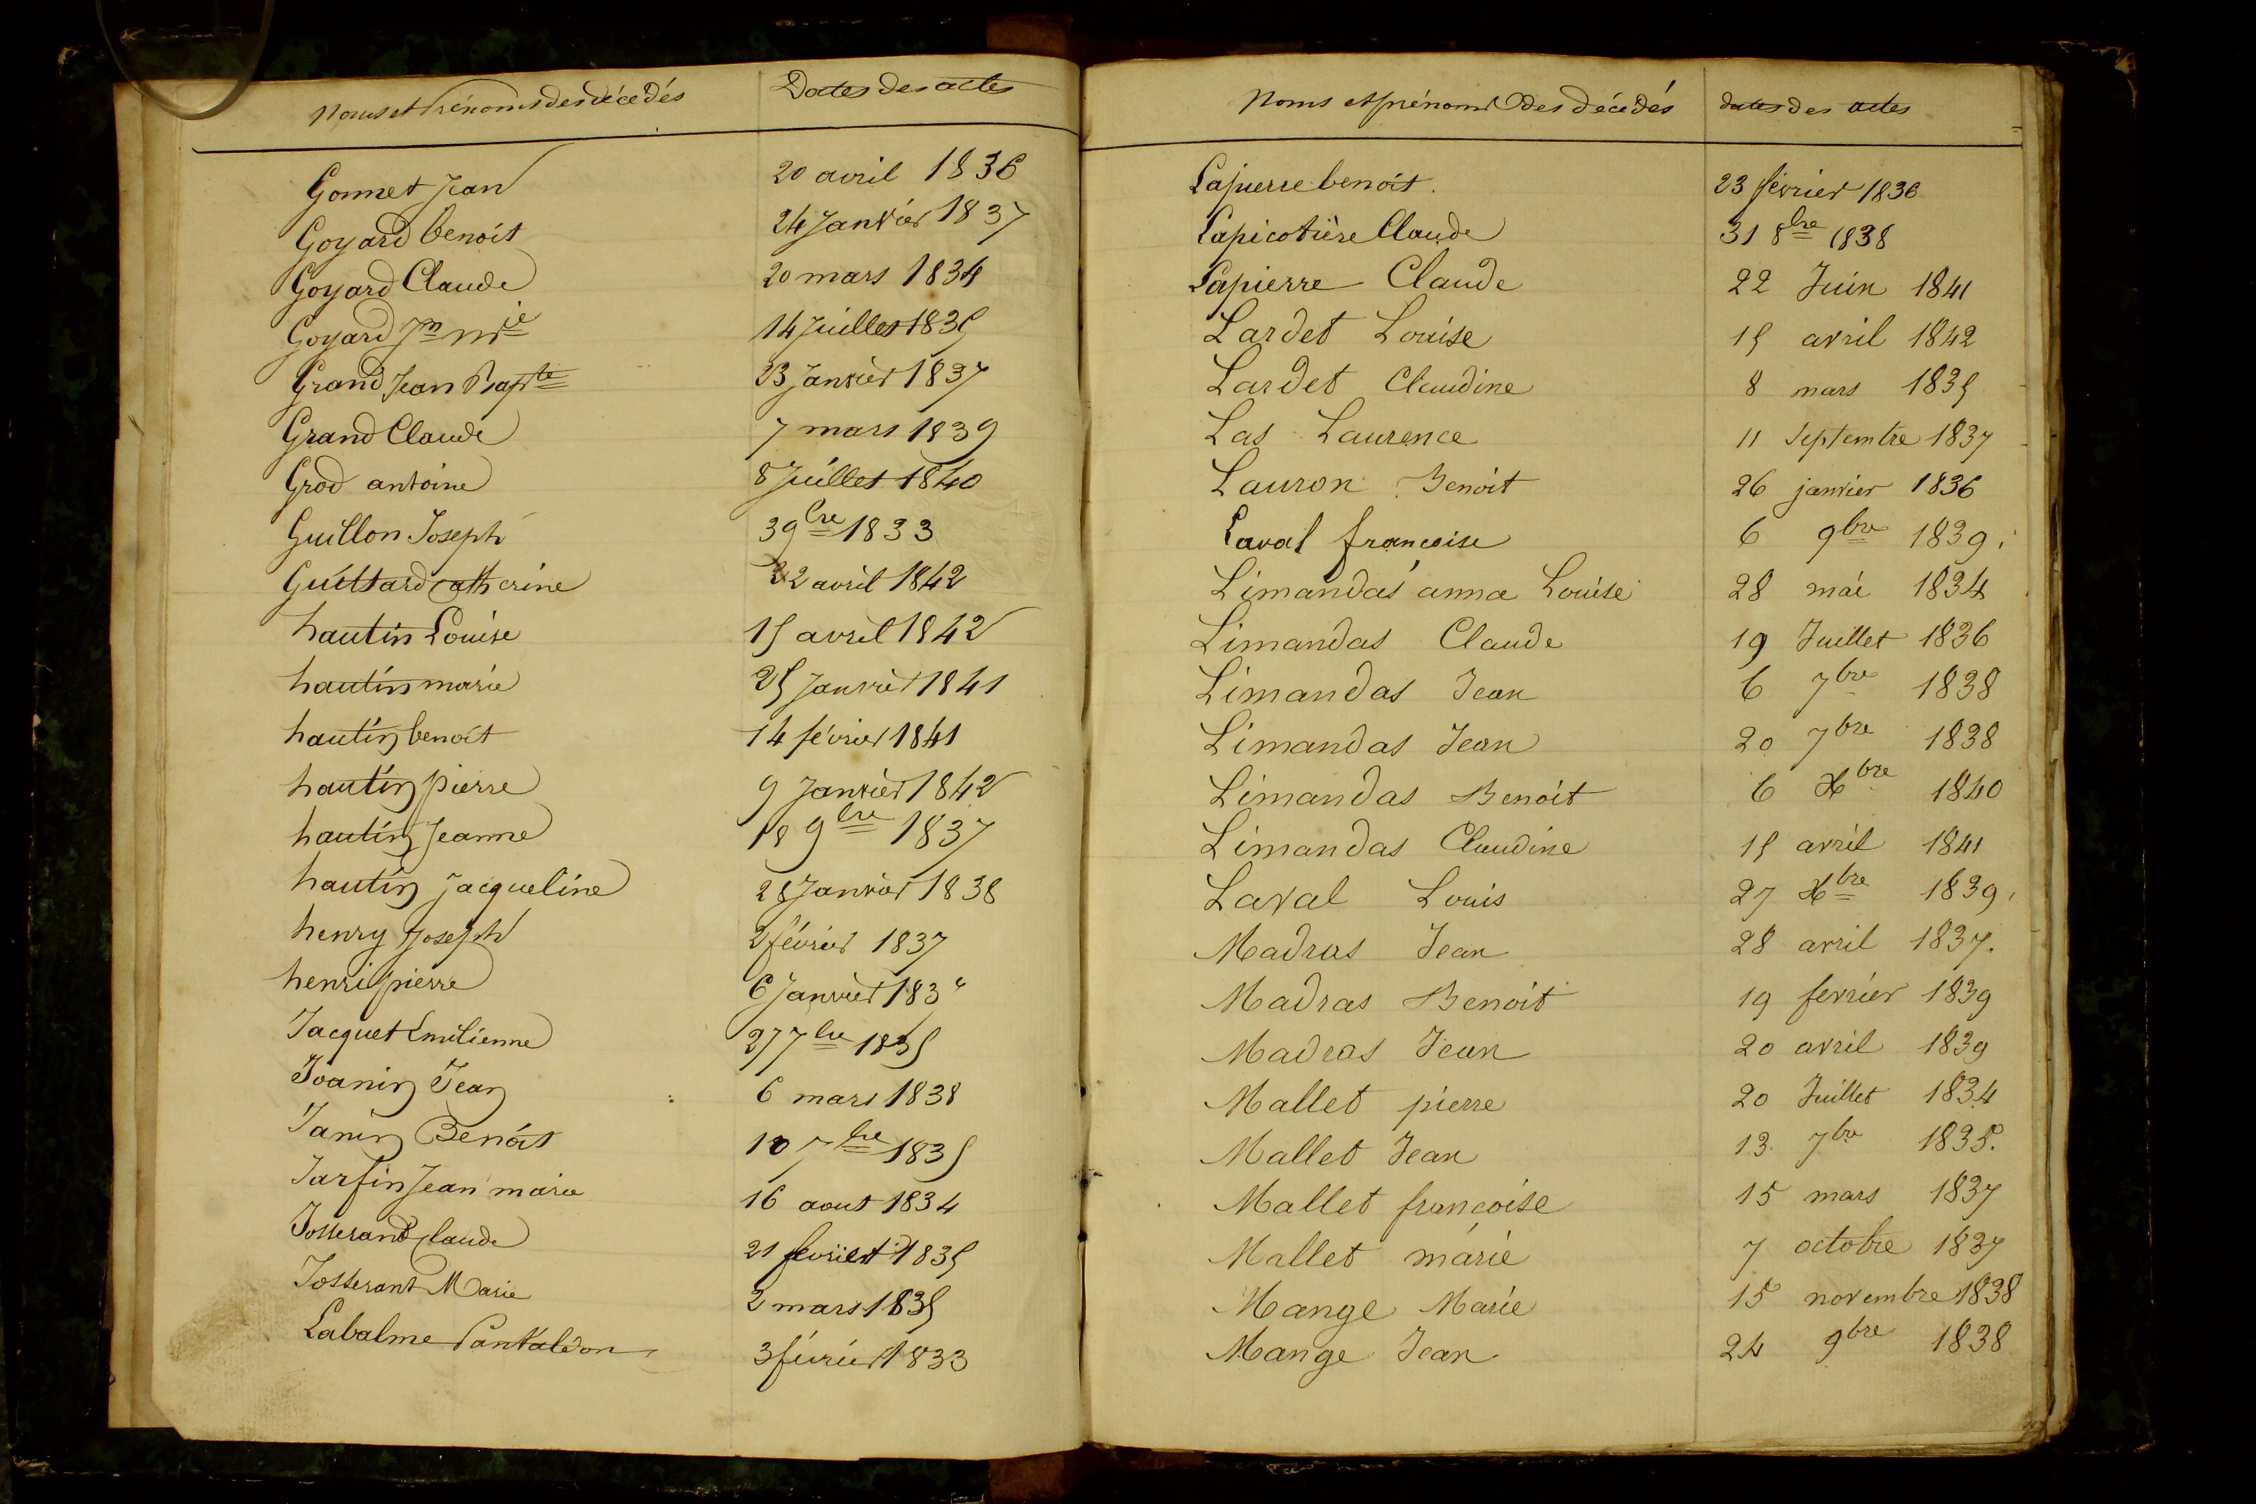 Noms et Prénoms des décédés Dates des actes
Gonnet Jean 20 avril 1836
Goyard benoit 24 Janvier 1837
Goyard Claude 20 mars 1834
Goyard Jn mie 14 Juillet 1835
Grand Jean Bapte 23 Janvier 1837
Grand Claude 7 mars 1839
Grod antoine 8 Juillet 1840
Guillon Joseph 3 9bre 1833
Catherine 22 avril 1842
hautin Louise 15 avril 1842
hautin marie 25 Janvier 1841
hautin benoit 14 février 1841
hautin pierre 9 Janvier 1842
hautin Jeanne 18 9bre 1837
hautin Jacqueline 28 Janvier 1838
henry Joseph 2 février 1837
henri pierre 6 Janvier
Jacquet Emilienne 27 7bre 1835
Joanin Jean 6 mars 1838
Janin Benoit 10 7bre 1835
Jarfin Jean marie 16 aout 1834
Josserand Claude 21 fevrier 1835
Josserant Marie 2 mars 1835
Labalme Pantaléon 3 février 1833
Noms et prénoms des décédés dates des actes
Lapierre benoit. 23 février 1836
Lapicotière Claude 31 8bre 1838
Lapierre Claude 22 Juin 1841
Lardet Louise 15 avril 1842
Lardet Claudine 8 mars 1835
Las Laurence 11 Septembre 1837
Lauron Benoit 26 janvier 1836
Laval françoise 6 9bre 1839
Limandas anna Louise 28 mai 1834
Limandas Claude 19 Juillet 1836
Limandas Jean 6 7bre 1838
Limandas Jean 20 7bre 1838
Limandas Benoit 6 Xbre 1840
Limandas Claudine 15 avril 1841
Laval Louis 27 Xbre 1839
Madras Jean 28 avril 1837.
Madras Benoit 19 fevrier 1839
Madras Jean 20 avril 1839
Mallet pierre 20 Juillet 1834
Mallet Jean 13 7bre 1835.
Mallet françoise 15 mars 1837
Mallet marie 7 octobre 1837
Mange Marie 15 novembre 1838
Mange Jean 24 9bre 1838